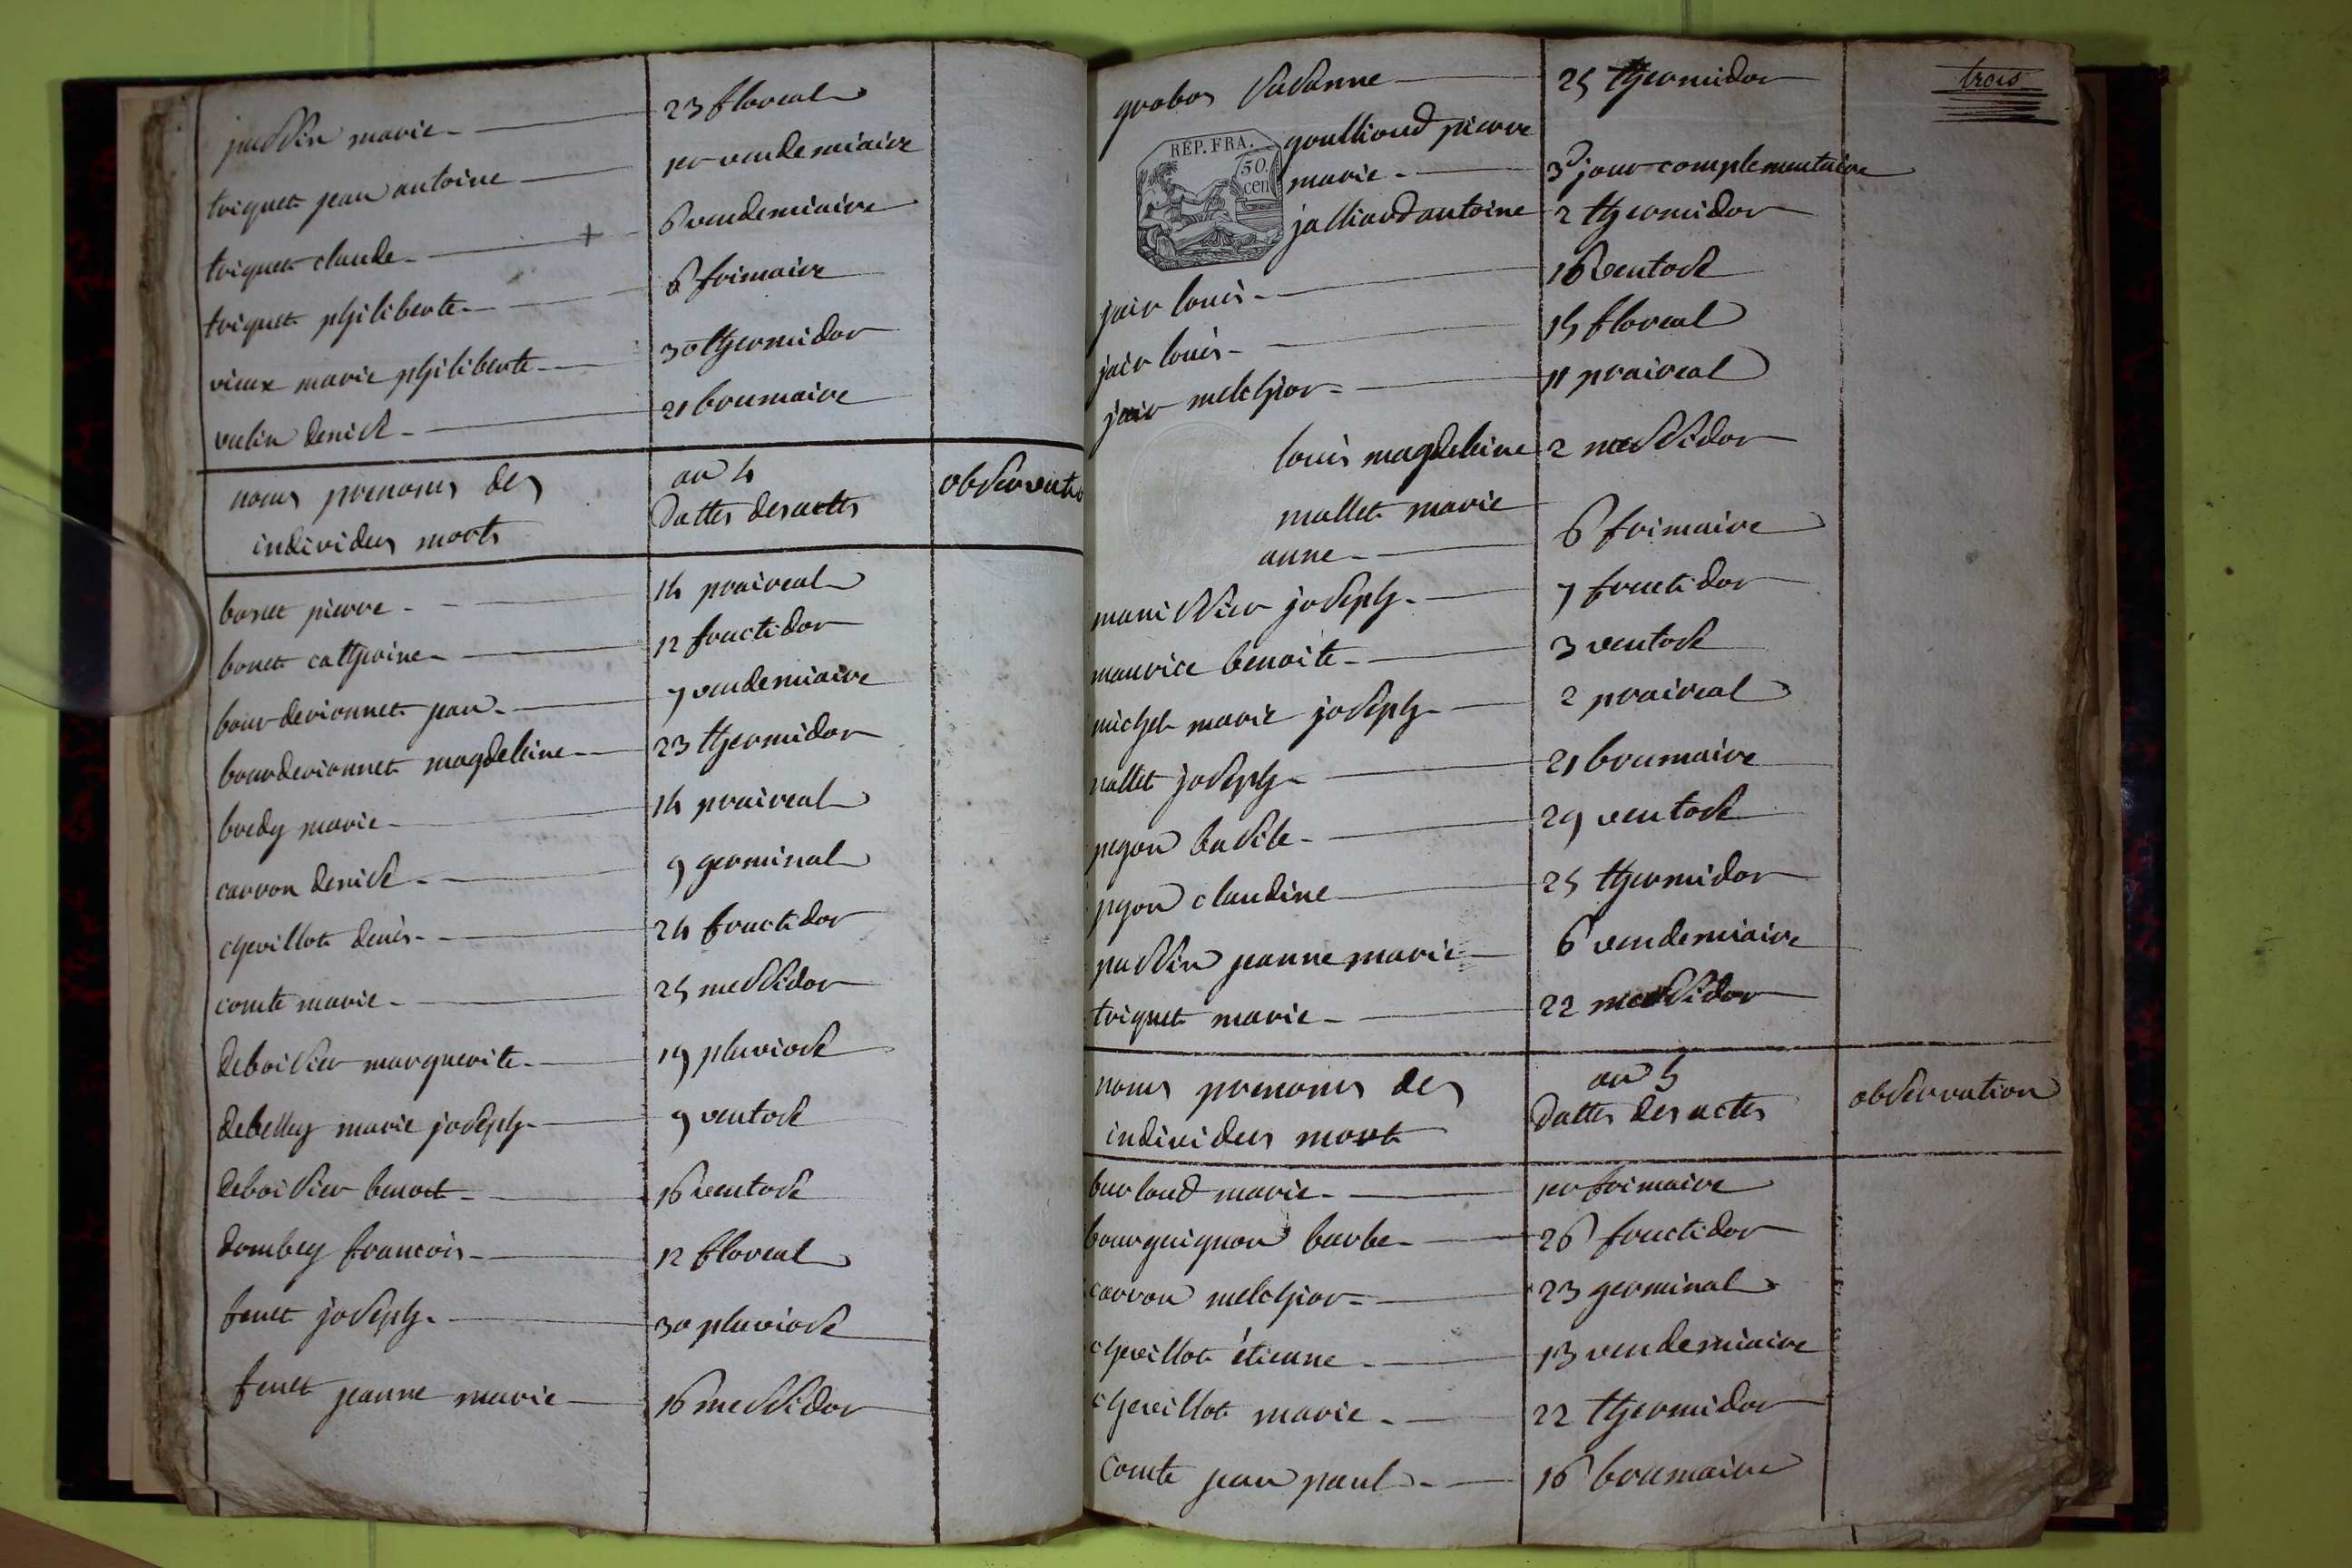 passin marie 23 floreal
triquet jean antoine per vendemiaire
triquet claude + 6 vendemiaire
triquet philiberte 6 frimaire
vieux marie philiberte 30 thermidor
vulin denise 21 brumaire
noms prenoms des
individus morts
an 4
dattes des actes
observatio
bonet pierre 14 praireal
bonet catherine 12 fructidor
bourderionnet jean 7 vendemiaire
bourderionnet magdeleine 23 thermidor
bredy marie 14 praireal
carron denise 9 germinal
chevillot denis 24 fructidor
comte marie 25 messidor
deboisier marguerite 19 pluviose
debelley marie joseph 9 ventose
deboisier benoit 16 ventose
dombey francois 12 floreal
fenet joseph 30 pluviose
fenet jeanne marie 16 messidor
trois
grobos susanne 25 thermidor
REP. FRA.
50
cen
goullioud pierre
marie 3e jour complementaire
jalliard antoine 2 thermidor
jair louis 16 ventose
jair louis 15 floreal
jair melchior 11 praireal
louis magdeleine 2 messidor
mallet marie
anne 6 frimaire
manissier joseph 7 fructidor
maurice benoite 3 ventose
michel marie joseph 2 praireal
nallet joseph 21 brumaire
pegon basile 29 ventose
pegon claudine 25 thermidor
passin jeanne marie 6 vendemiaire
triquet marie 22 messidor
noms prenoms des
individus mort
an 5
dattes des actes
observation
burloud marie per frimaire
bourguignon barbe 26 fructidor
carron melchior 23 germinal
chevillot étienne 13 vendemiaire
chevillot marie 22 thermidor
comte jean paul 16 brumaire